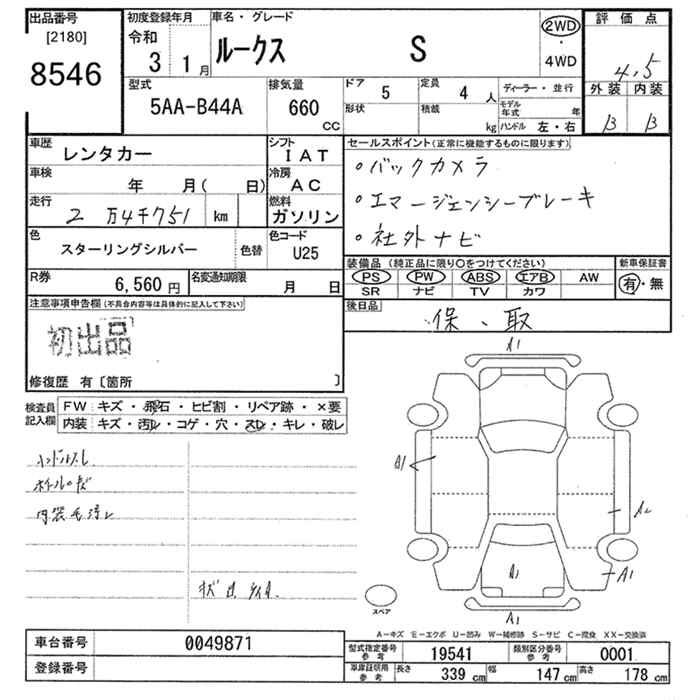 出品番号
[2180]
8546
初度登録年月
令和 3 1月
車名・グレード
ルークス S
2WD
・
4WD
評価点
4.5
外装 内装
B B
型式
5AA-B44A
排気量
660
CC
ドア 5
形状
定員 4 人
積載 kg
ディーラー・並行
モデル年式 年
ハンドル 左・右
車歴
レンタカー
シフト
IAT
車検
年 月( 日)
冷房
AC
走行
2万4千751 km
燃料
ガソリン
色
スターリングシルバー
色替
色コード
U25
R券
6,560円
名変通知期限
月 日
注意事項申告欄(不具合内容等は具体的に記入して下さい)
初出品
修復歴 有〔箇所 〕
セールスポイント(正常に機能するものに限ります)
。バックカメラ
。エマージェンシーブレーキ
。社外ナビ
装備品(純正品に限り○をつけてください)
新車保証書
PS PW ABS エアB AW
SR ナビ TV カワ
有・無
後日品
保、取
検査員記入欄
FW:キズ・飛石・ヒビ割・リペア跡・×要
内装:キズ・汚レ・コゲ・穴・スレ・キレ・破レ
ハンドルスレ
ホイールキズ
内装毛汚レ
A1
A1
A2
A1
A1
A1
スペア
A-キズ E-エクボ U-凹み W-補修跡 S-サビ C-腐食 XX-交換済
車台番号
0049871
登録番号
型式指定番号 参考
19541
類別区分番号 参考
0001
車庫証明用 参考
長さ 339 cm
幅 147 cm
高さ 178 cm